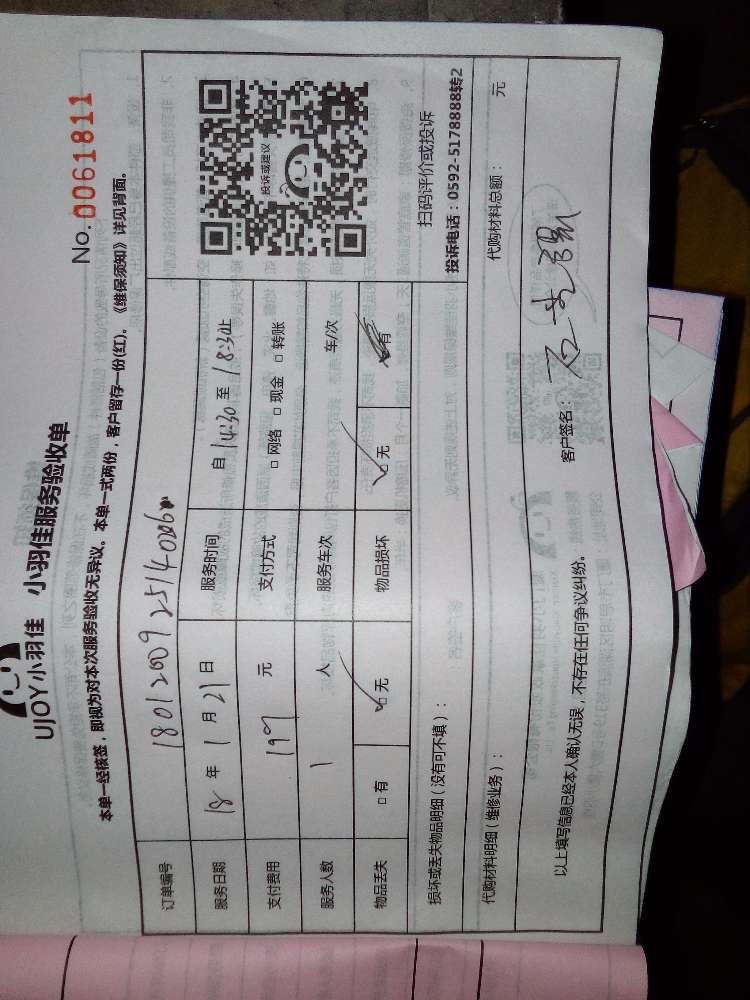 UJOY小羽佳 小羽佳服务验收单
No.0061811
本单一经核签，即视为对本次服务验收无异议。本单一式两份，客户留存一份(红)。《维保须知》详见背面。
订单编号 18012009251140206
服务日期 18 年 1 月 21 日 服务时间 自 14:30 至 18:30止
支付费用 199 元 支付方式 □ 网络 □ 现金 □ 转账
服务人数 1 人 服务车次 车/次
物品丢失 □ 有 □ 无 物品损坏 □ 无 □ 有
投诉或建议
扫码评价或投诉
投诉电话：0592-5178888转2
损坏或丢失物品明细（没有可不填）：
代购材料明细（维修业务）： 代购材料总额： 元
以上填写信息已经本人确认无误，不存在任何争议纠纷。 客户签名：